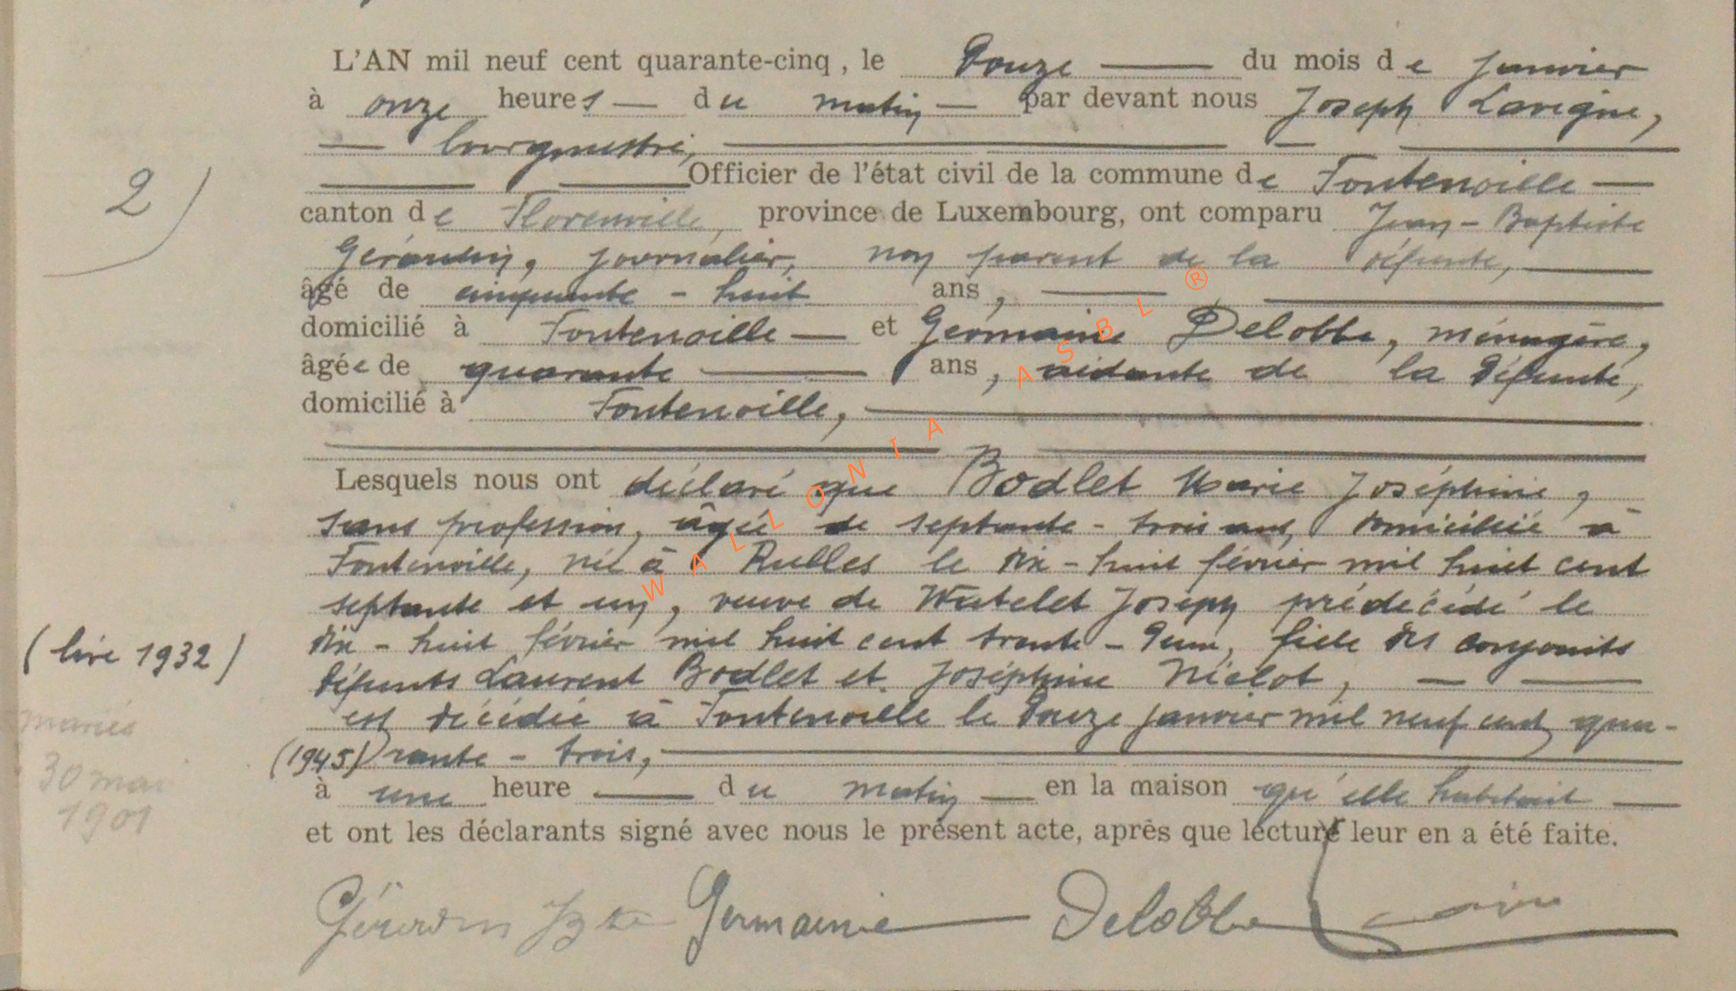 L'AN mil neuf cent quarante-cinq, le Douze du mois de janvier
à onze heures du matin par devant nous Joseph Lavigne,
bourgmestre,
Officier de l'état civil de la commune de Fontenoille
2)
canton de Florenville, province de Luxembourg, ont comparu Jean-Baptiste
Gérardin, journalier, non parent de la défunte,
âgé de cinquante-huit ans,
domicilié à Fontenoille et Germaine Delobbe, ménagère,
âgée de quarante ans, aidante de la défunte,
domicilié à Fontenoille,
Lesquels nous ont déclaré que Bodlet Marie Joséphine,
sans profession, âgée de septante-trois ans, domiciliée à
Fontenoille, née à Rulles le dix-huit février mil huit cent
septante et un, veuve de Watelet Joseph prédécédé le
dix-huit février mil huit cent trente-deux, fille des conjoints
(lire 1932)
défunts Laurent Bodlet et Joséphine Niclot,
est décédée à Fontenoille le douze janvier mil neuf cent qua-
(1945) rante-trois,
mariés
30 mai
1901
à une heure du matin en la maison qu'elle habitait
et ont les déclarants signé avec nous le présent acte, après que lecture leur en a été faite.
Gérardin JBte Germaine Delobbe
WALLONIA ASBL ®